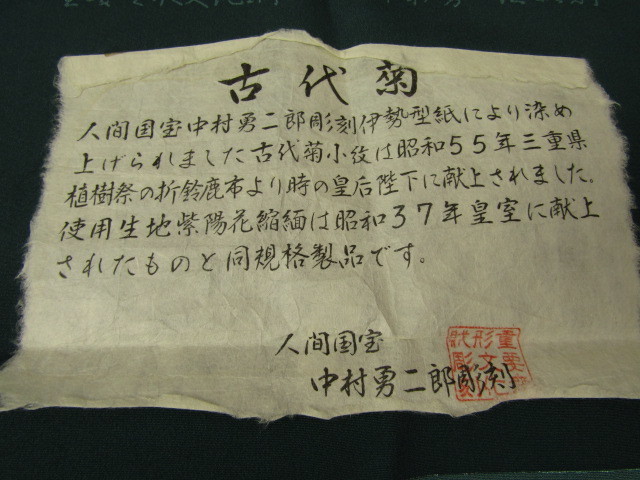 古代菊
人間国宝中村勇二郎彫刻伊勢型紙により染め
上げられました古代菊小紋は昭和55年三重県
植樹祭の折鈴鹿市より時の皇后陛下に献上されました。
使用生地紫陽花縮緬は昭和37年皇室に献上
されたものと同規格製品です。
人間国宝
中村勇二郎彫刻